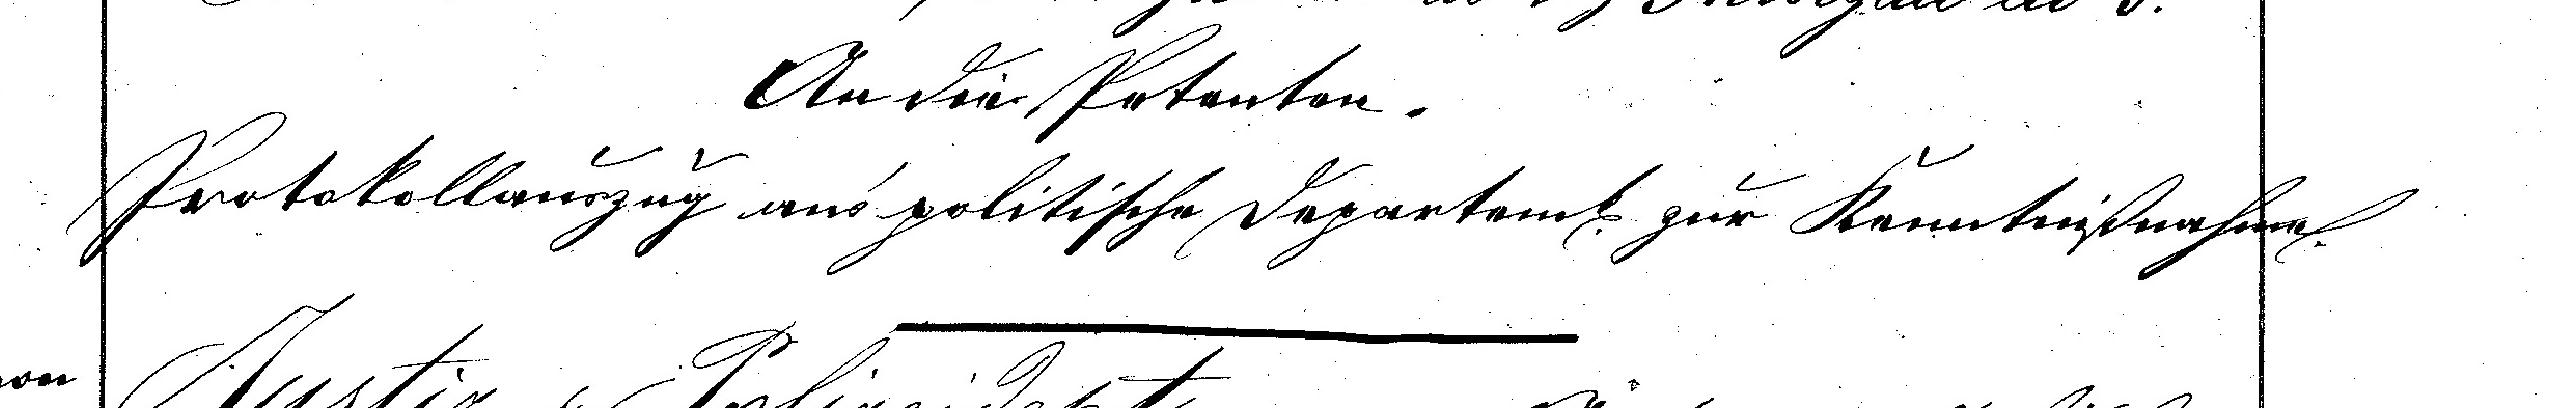 An die Petenten.
Protokollauszug ans politische Departemt. zur Kenntnißnahme.
von
Justiz & Polizeidept